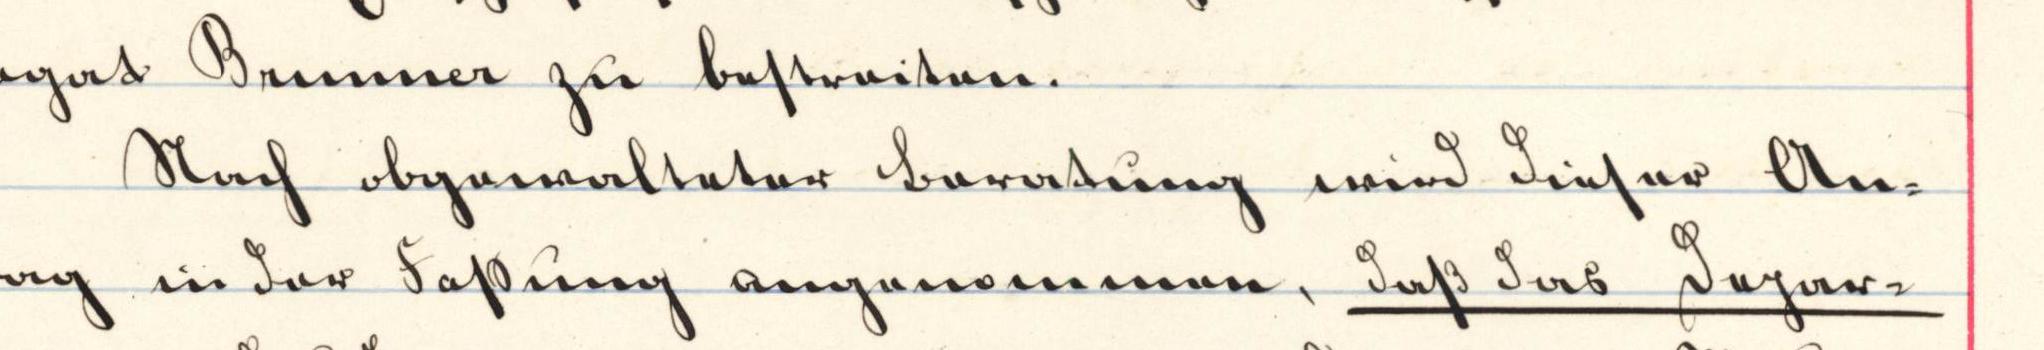 egat Brunner zu bestreiten.
Nach abgewalteter Beratung wird dieser An-
rag in der Faßung angenommen, daß das Depar-